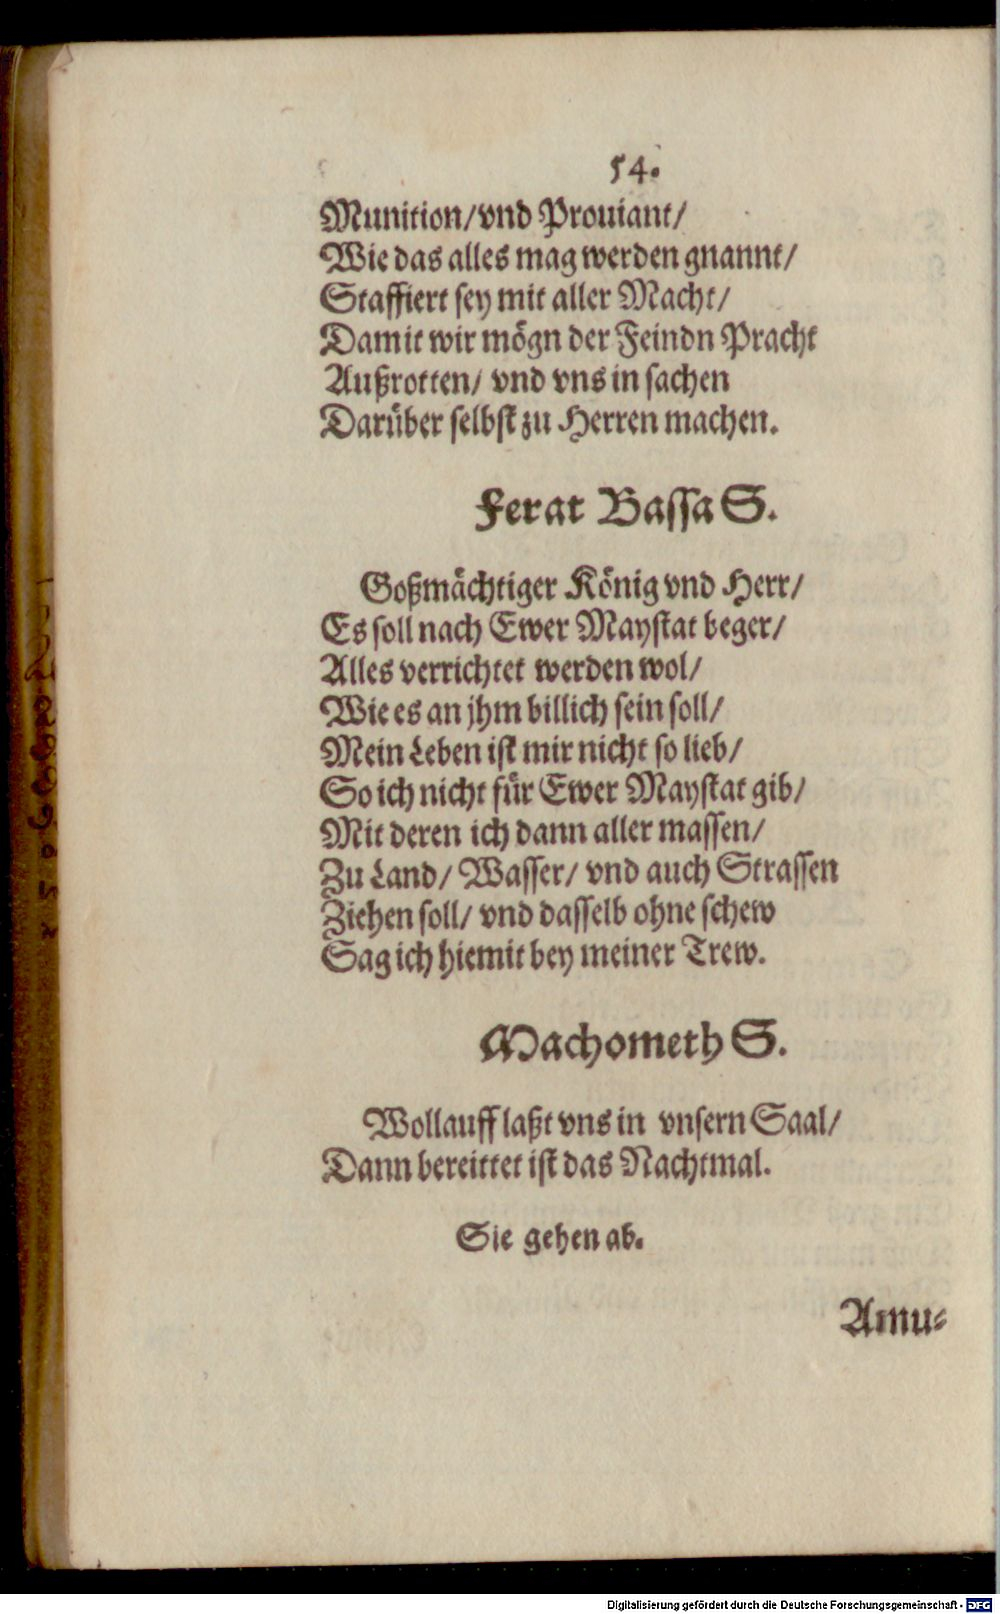 54.
Munition/ vnd Prouiant/
Wie das alles mag werden gnannt/
Staffiert sey mit aller Macht/
Damit wir mögn der Feindn Pracht
Außrotten/ vnd vns in sachen
Darüber selbst zu Herren machen.
Ferat Bassa S.
Goßmächtiger König vnd Herr/
Es soll nach Ewer Maystat beger/
Alles verrichtet werden wol/
Wie es an jhm billich sein soll/
Mein Leben ist mir nicht so lieb/
So ich nicht für Ewer Maystat gib/
Mit deren ich dann aller massen/
Zu Land/ Wasser/ vnd auch Strassen
Ziehen soll/ vnd dasselb ohne schew
Sag ich hiemit bey meiner Trew.
Machometh S.
Wollauff laßt vns in vnsern Saal/
Dann bereittet ist das Nachtmal.
Sie gehen ab.
Amu-
Digitalisierung gefördert durch die Deutsche Forschungsgemeinschaft - DFG